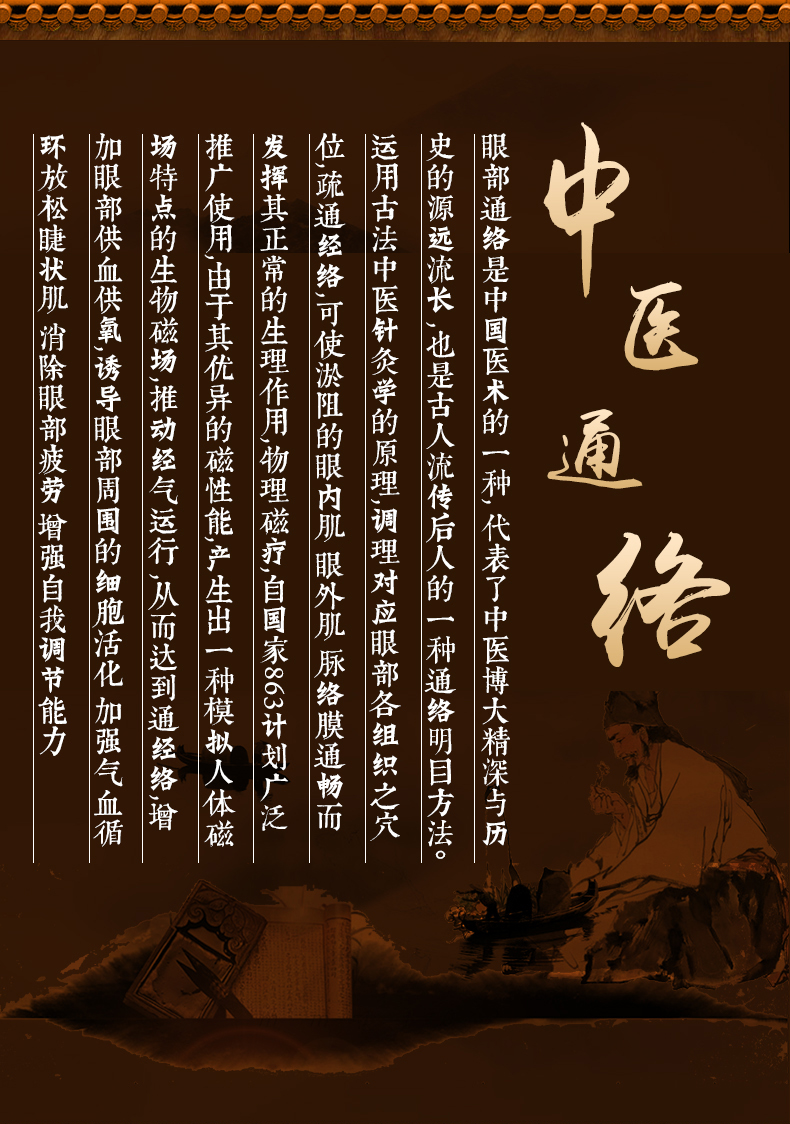 中医通络
眼部通络是中国医术的一种,代表了中医博大精深与历
史的源远流长,也是古人流传后人的一种通络明目方法。
运用古法中医针灸学的原理,调理对应眼部各组织之穴
位,疏通经络,可使淤阻的眼内肌 眼外肌 脉络膜通畅而
发挥其正常的生理作用,物理磁疗,自国家863计划广泛
推广使用,由于其优异的磁性能,产生出一种模拟人体磁
场特点的生物磁场,推动经气运行,从而达到通经络,增
加眼部供血供氧,诱导眼部周围的细胞活化 加强气血循
环放松睫状肌 消除眼部疲劳 增强自我调节能力